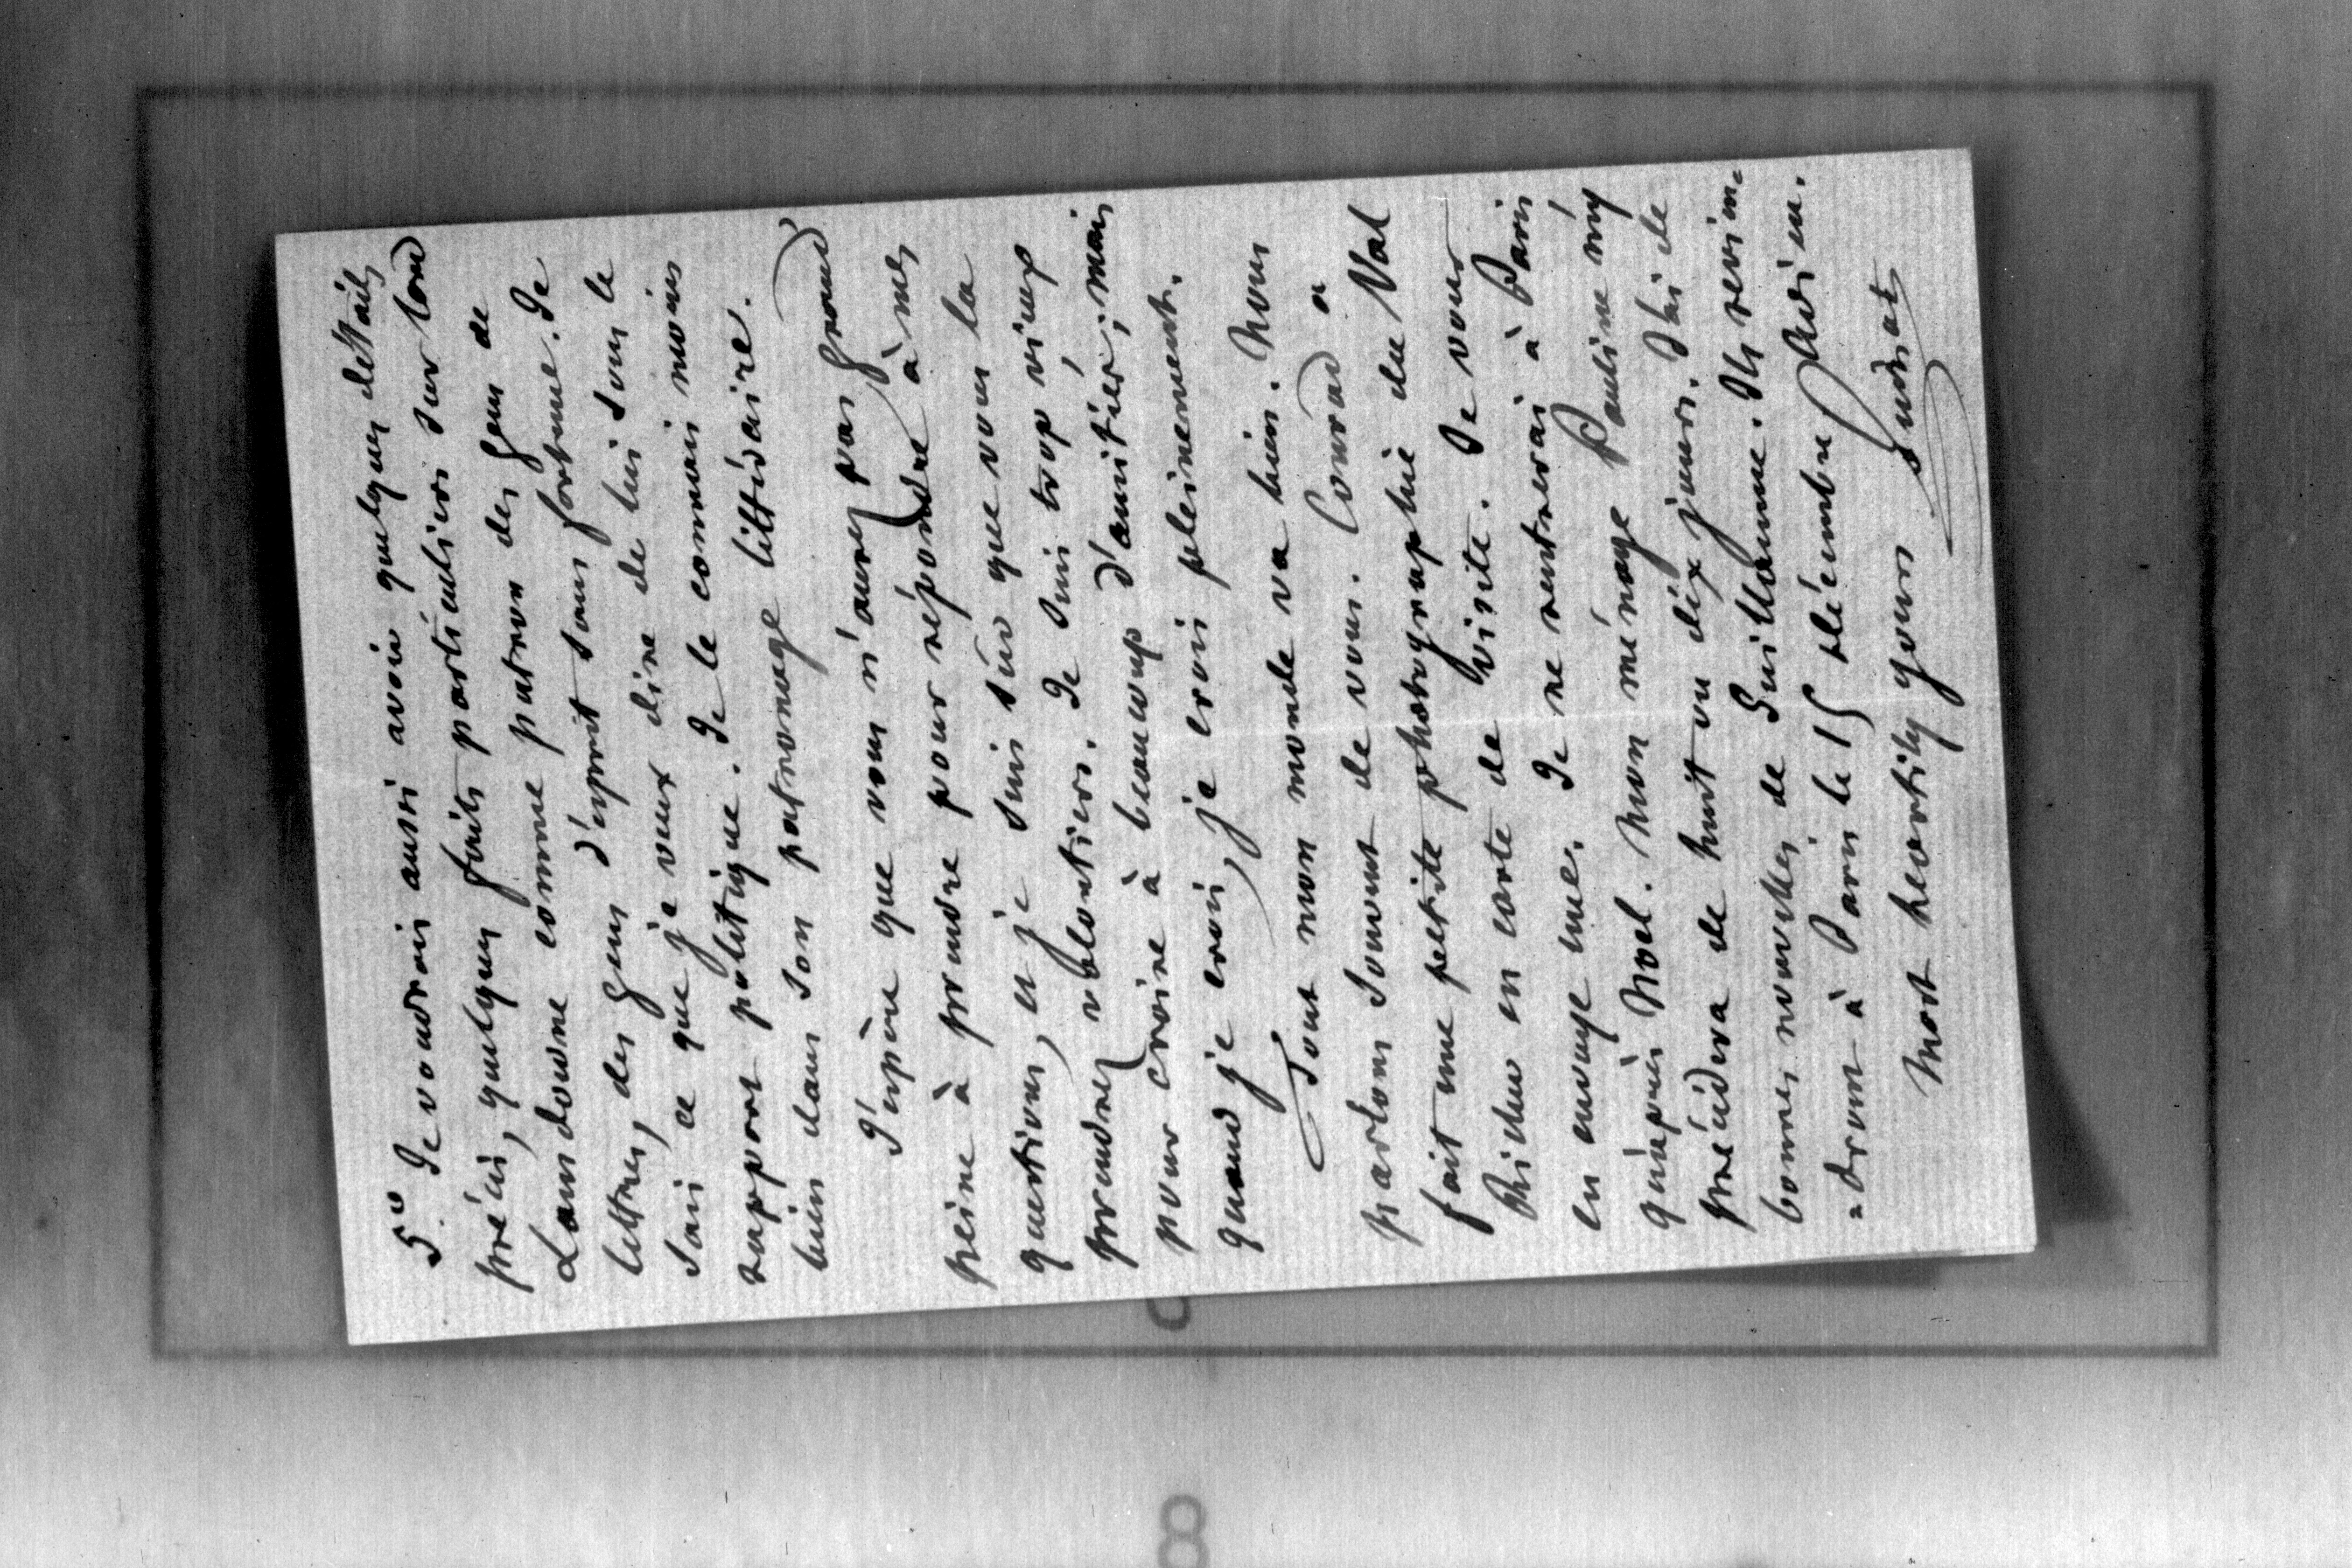 5º Je voudrais aussi avoir quelques détails
précis, quelques faits particuliers sur Lord
Lansdowne comme patron des gens de
lettres, des gens d'esprit sans fortune. Je
sais ce que je veux dire de lui sous le
rapport politique. Je le connais moins
bien dans son patronage littéraire.
J'espère que vous n'aurez pas grand
peine à prendre pour répondre à mes
questions, et je suis sûr que vous la
prendrez volontiers. Je suis trop vieux
pour croire à beaucoup d'amitiés; mais
quand je crois, je crois pleinement.
Tout mon monde va bien. Nous
parlons souvent de vous. Conrad a
fait une petite photographie du Val
Richer en carte de visite. Je vous
en envoye une. Je ne rentrerai à Paris
qu'après Noel. Mon ménage Pauline m'y
précédera de huit ou dix jours. J'ai de
bonnes nouvelles de Guillaume. Ils revien-
-dront à Paris le 15 décembre. Adieu.
Most heartily yours
Guizot
8